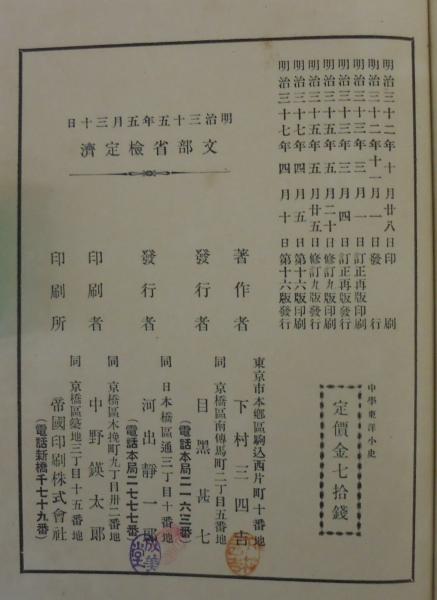 明治三十二年十月廿八日印刷
明治三十二年十一月一日發行
明治三十三年三月一日訂正再版印刷
明治三十三年三月四日訂正再版發行
明治三十五年五月二十日修訂九版印刷
明治三十五年五月廿五日修訂九版發行
明治三十七年四月五日第十六版印刷
明治三十七年四月十日第十六版發行
明治三十五年五月三十日
文部省檢定濟
中學東洋小史
定價金七拾錢
東京市本鄉區駒込西片町十番地
著作者 下村三四吉
同 京橋區南傳馬町二丁目五番地
發行者 目黑甚七
(電話本局二一六三番)
同 日本橋區通三丁目十番地
發行者 河出靜一郎
(電話本局二七七七番)
同 京橋區木挽町九丁目卅二番地
印刷者 中野鍈太郎
同 京橋區築地三丁目十五番地
印刷所 帝國印刷株式會社
(電話新橋千七十九番)